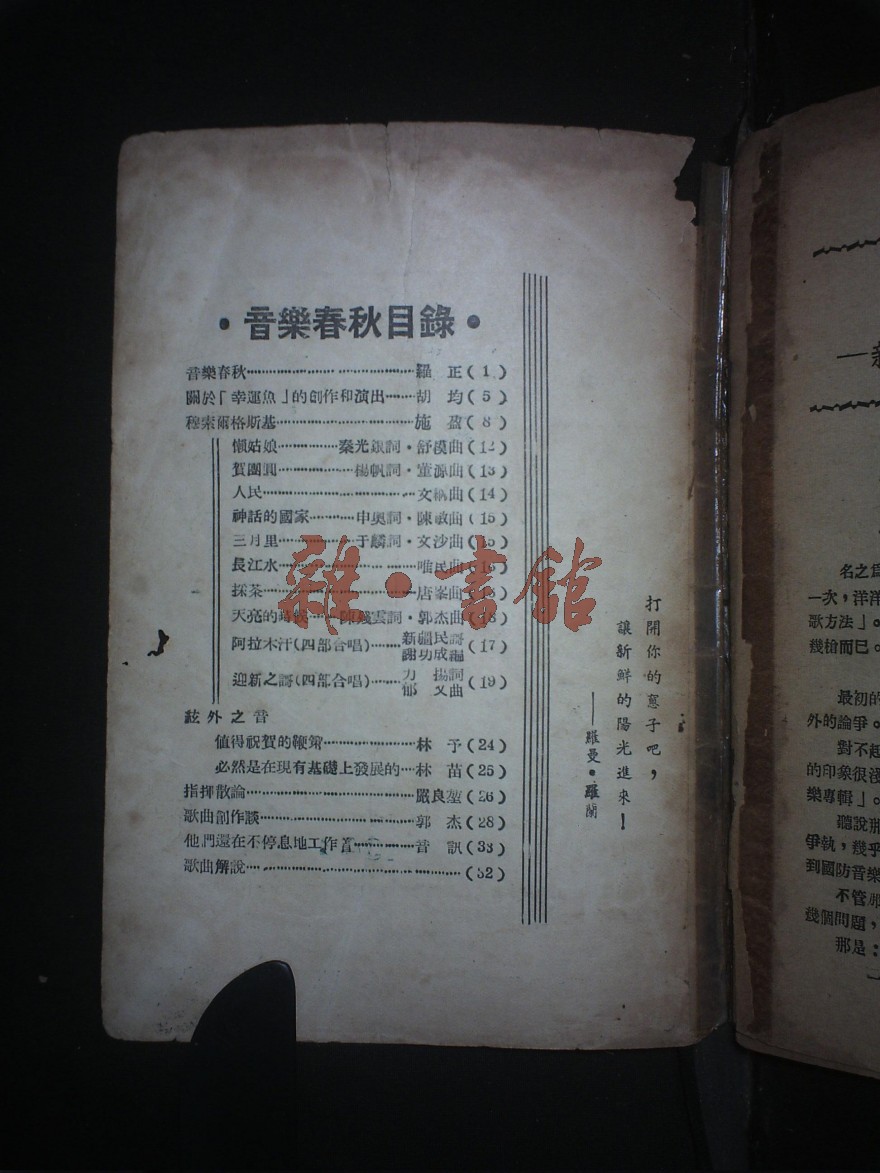 •音樂春秋目錄•
音樂春秋……羅 正(1)
關於「幸運魚」的創作和演出……胡 均(5)
穆索爾格斯基……施 盈(8)
懶姑娘……秦光銀詞·舒模曲(12)
賀團圓……楊帆詞·董源曲(13)
人民……文 曲(14)
神話的國家……申奧詞·陳敏曲(15)
三月里……于麟詞·文沙曲(15)
長江水……唯民曲(16)
採茶……唐峯曲
天亮的時候……陳殘雲詞·郭杰曲
阿拉木汗(四部合唱)……新疆民謌 謝功成編(17)
迎新之謌(四部合唱)……力 揚詞 郁 文曲(19)
絃外之音
值得祝賀的鞭策……林 予(24)
必然是在現有基礎上發展的…林 苗(25)
指揮散論……嚴良堃(26)
歌曲創作談……郭 杰(28)
他們還在不停息地工作着……音 訊(33)
歌曲解說……(32)
打開你的窻子吧，
讓新鮮的陽光進來！
——羅曼·羅蘭
雜·書館
名之爲
一次，洋洋
歌方法」。
幾槍而已。
最初的
外的論爭。
對不起
的印象很淺
樂專輯」。
聽說那
爭執，幾乎
到國防音樂
不管那
幾個問題，
那是：